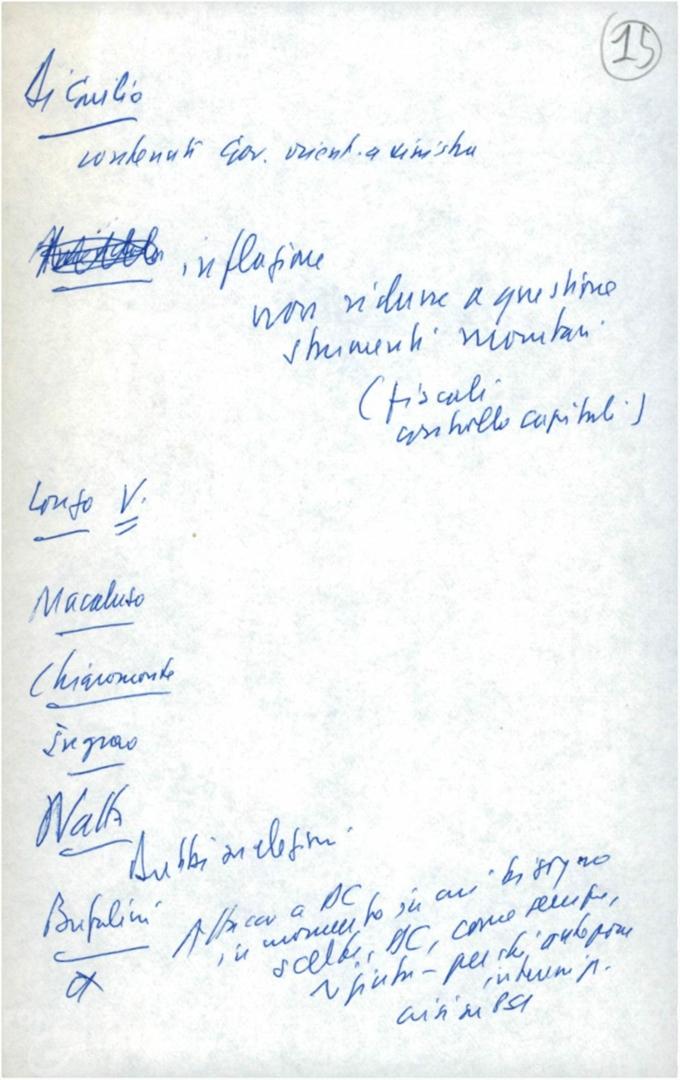 15
Di Giulio
contenuti Gov. orient. a sinistra
inflazione
non ridurre a questione
strumenti monetari
(fiscali
controllo capitali)
Longo V.
Macaluso
Chiaromonte
Ingrao
Natta
Dubbi su elezioni
Bufalini
Attacco a DC
in momento in cui bisogno
scelte, DC, come sempre,
perché
crisi su PSI